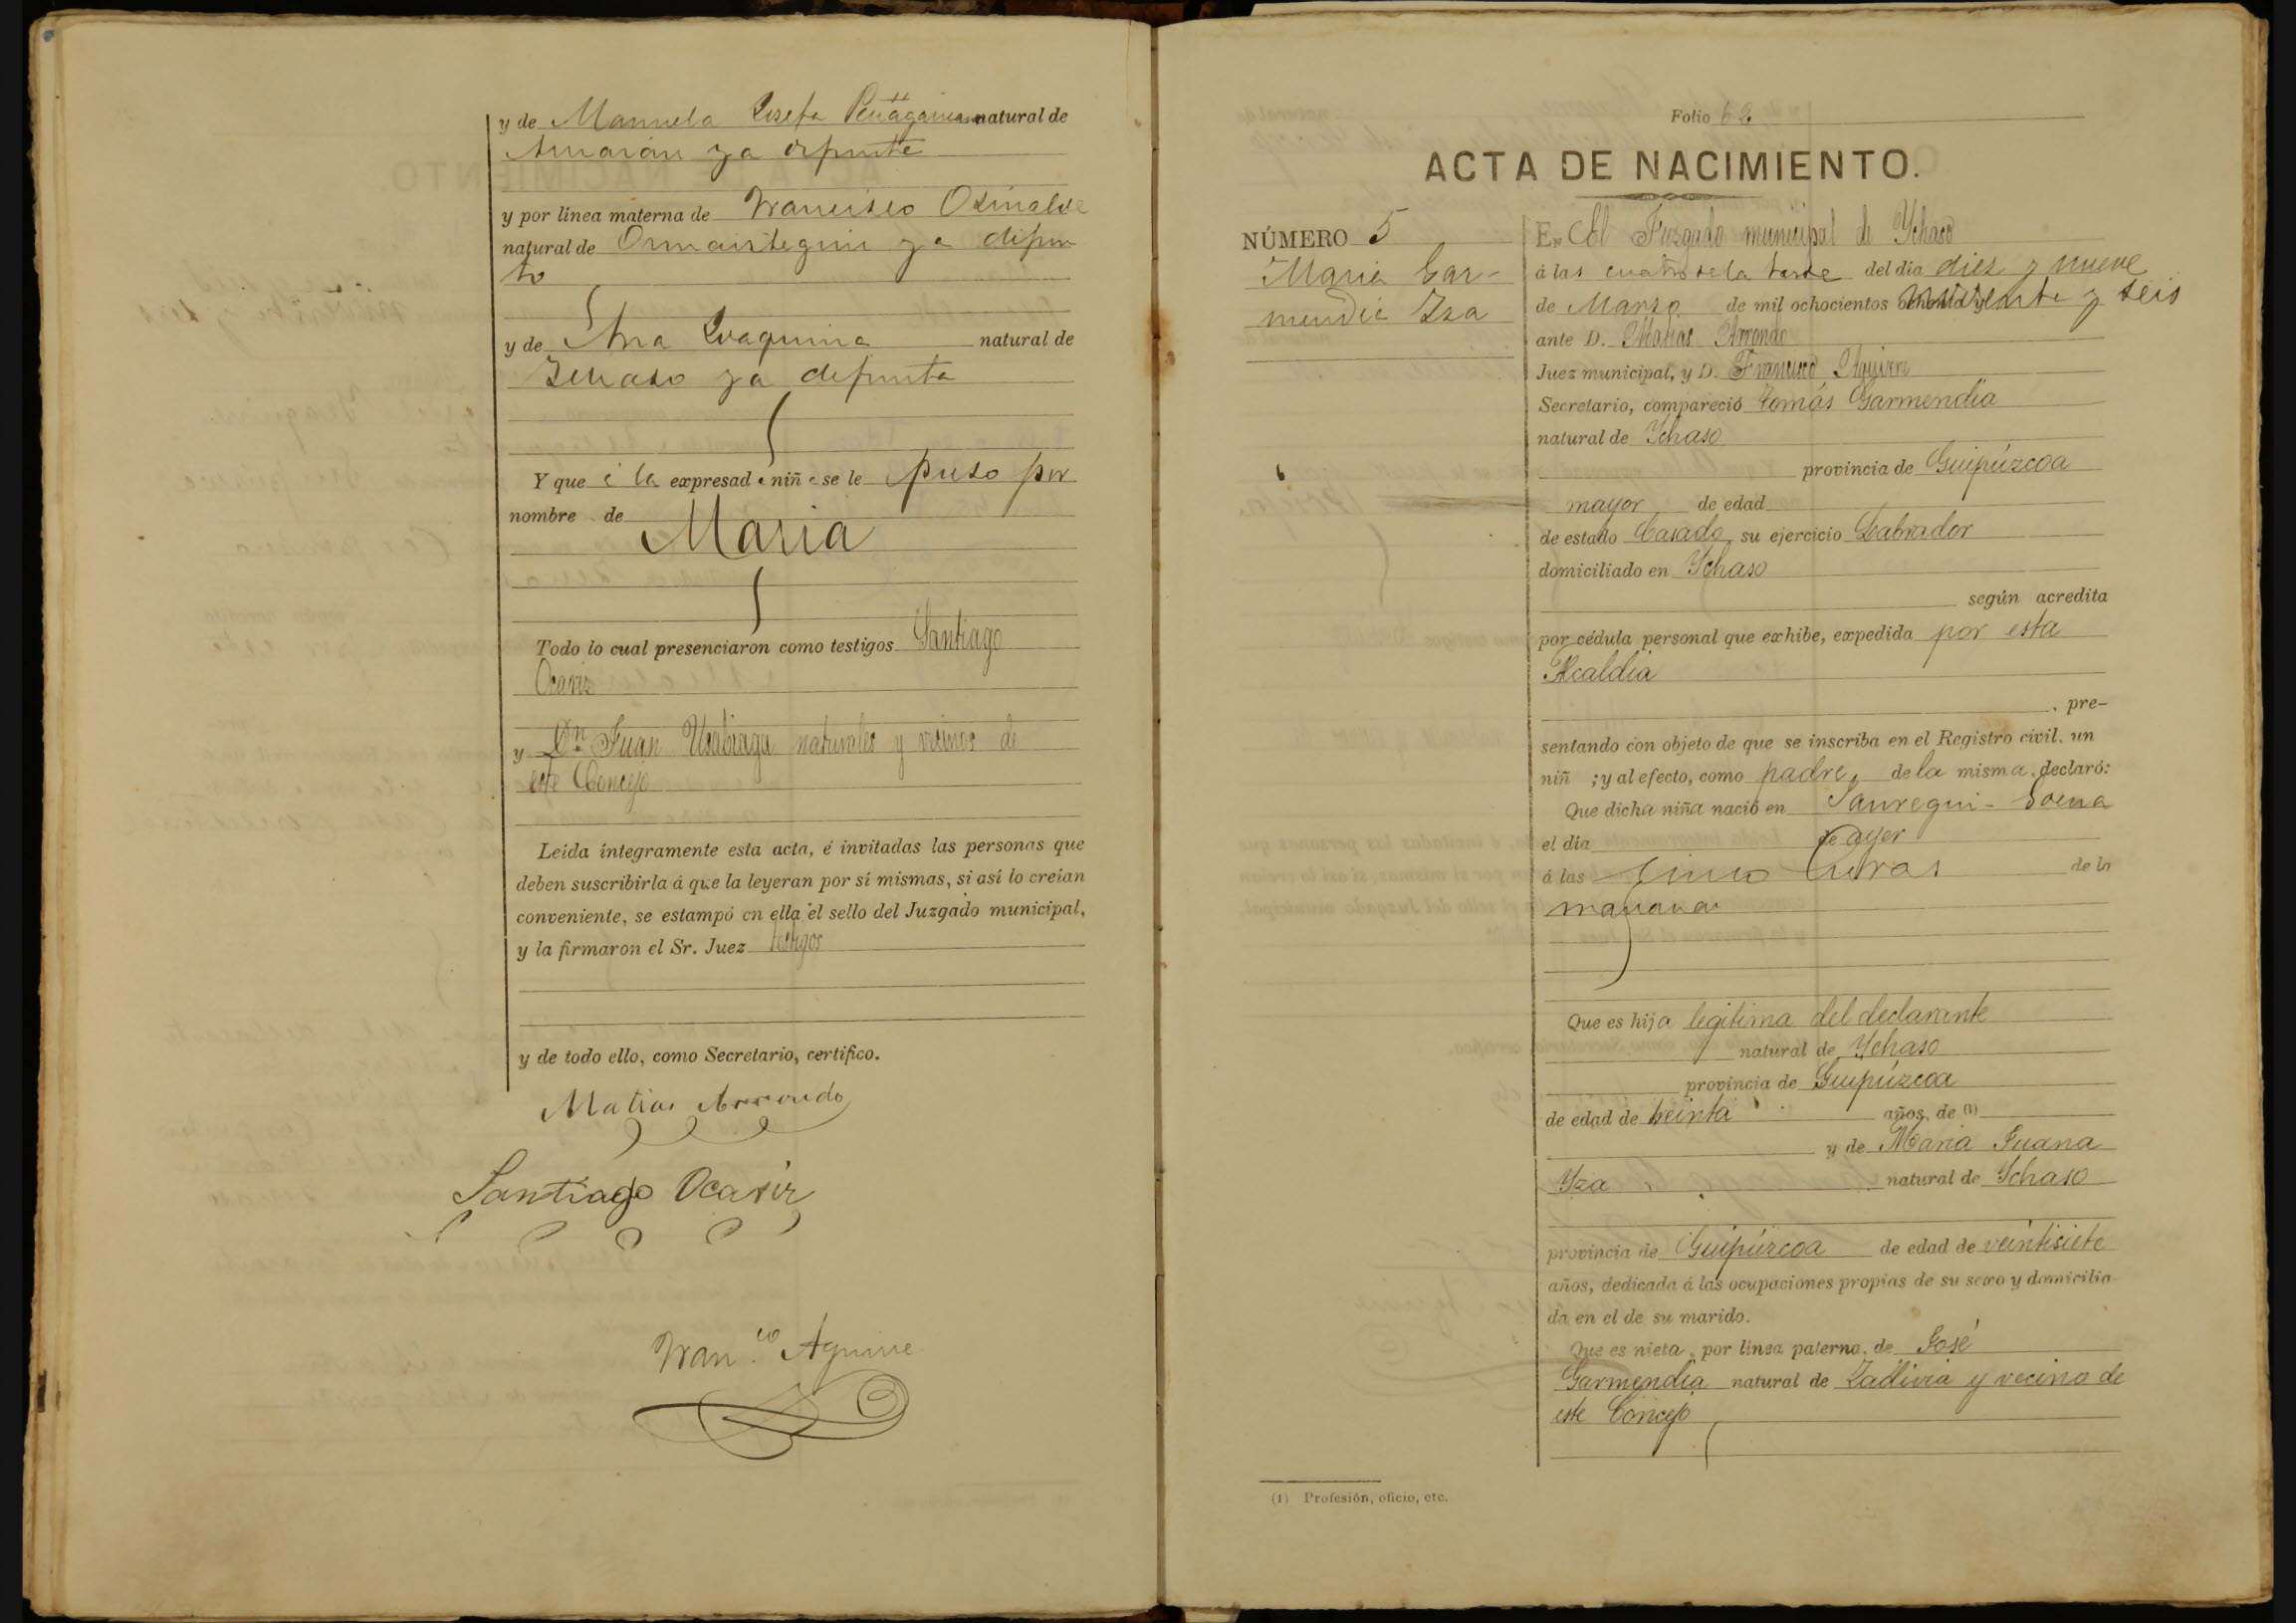 y de Manuela Josefa Peñagarica natural de
ya difunta
y por linea materna de Francisco
natural de Ormaiztegui ya difun
to
y de Ana Juaquina natural de
Ichaso ya difunta
Y que á la expresada niña se le puso por
nombre de
Maria
Todo lo cual presenciaron como testigos Santiago
Ocariz
y Dn Juan Usabiaga naturales y vecinos de
este Concejo
Leida íntegramente esta acta, é invitadas las personas que
deben suscribirla á que la leyeran por sí mismas, si así lo creían
conveniente, se estampó en ella el sello del Juzgado municipal,
y la firmaron el Sr. Juez testigos
y de todo ello, como Secretario, certifico.
Matias Arrondo
Santiago Ocariz
Franco Aguirre
Folio 62
ACTA DE NACIMIENTO.
NÚMERO 5
Maria Gar-
mendia Iza
En El Juzgado municipal de Ychaso
á las cuatro de la tarde del dia diez y nueve
de Marzo de mil ochocientos noventa y seis
ante D. Matias Arrondo
Juez municipal, y D. Francisco Aguirre
Secretario, compareció Tomás Garmendia
natural de Ychaso
provincia de Guipúzcoa
mayor de edad
de estado Casado, su ejercicio Labrador
domiciliado en Ychaso
según acredita
por cédula personal que exhibe, expedida por esta
Alcaldia
, pre-
sentando con objeto de que se inscriba en el Registro civil, un
niñ ; y al efecto, como padre, de la misma, declaró:
Que dicha niña nació en Jauregui-
el dia de ayer
á las cinco horas de la
mañana
Que es hija legitima del declarante
natural de Ychaso
provincia de Guipúzcoa
de edad de treinta años, de (1)
y de Maria Juana
Yza natural de Ychaso
provincia de Guipúzcoa de edad de veintisiete
años, dedicada á las ocupaciones propias de su sexo y domicilia-
da en el de su marido.
Que es nieta, por linea paterna, de José
Garmendia natural de Zaldivia y vecino de
este Concejo
(1) Profesión, oficio, etc.